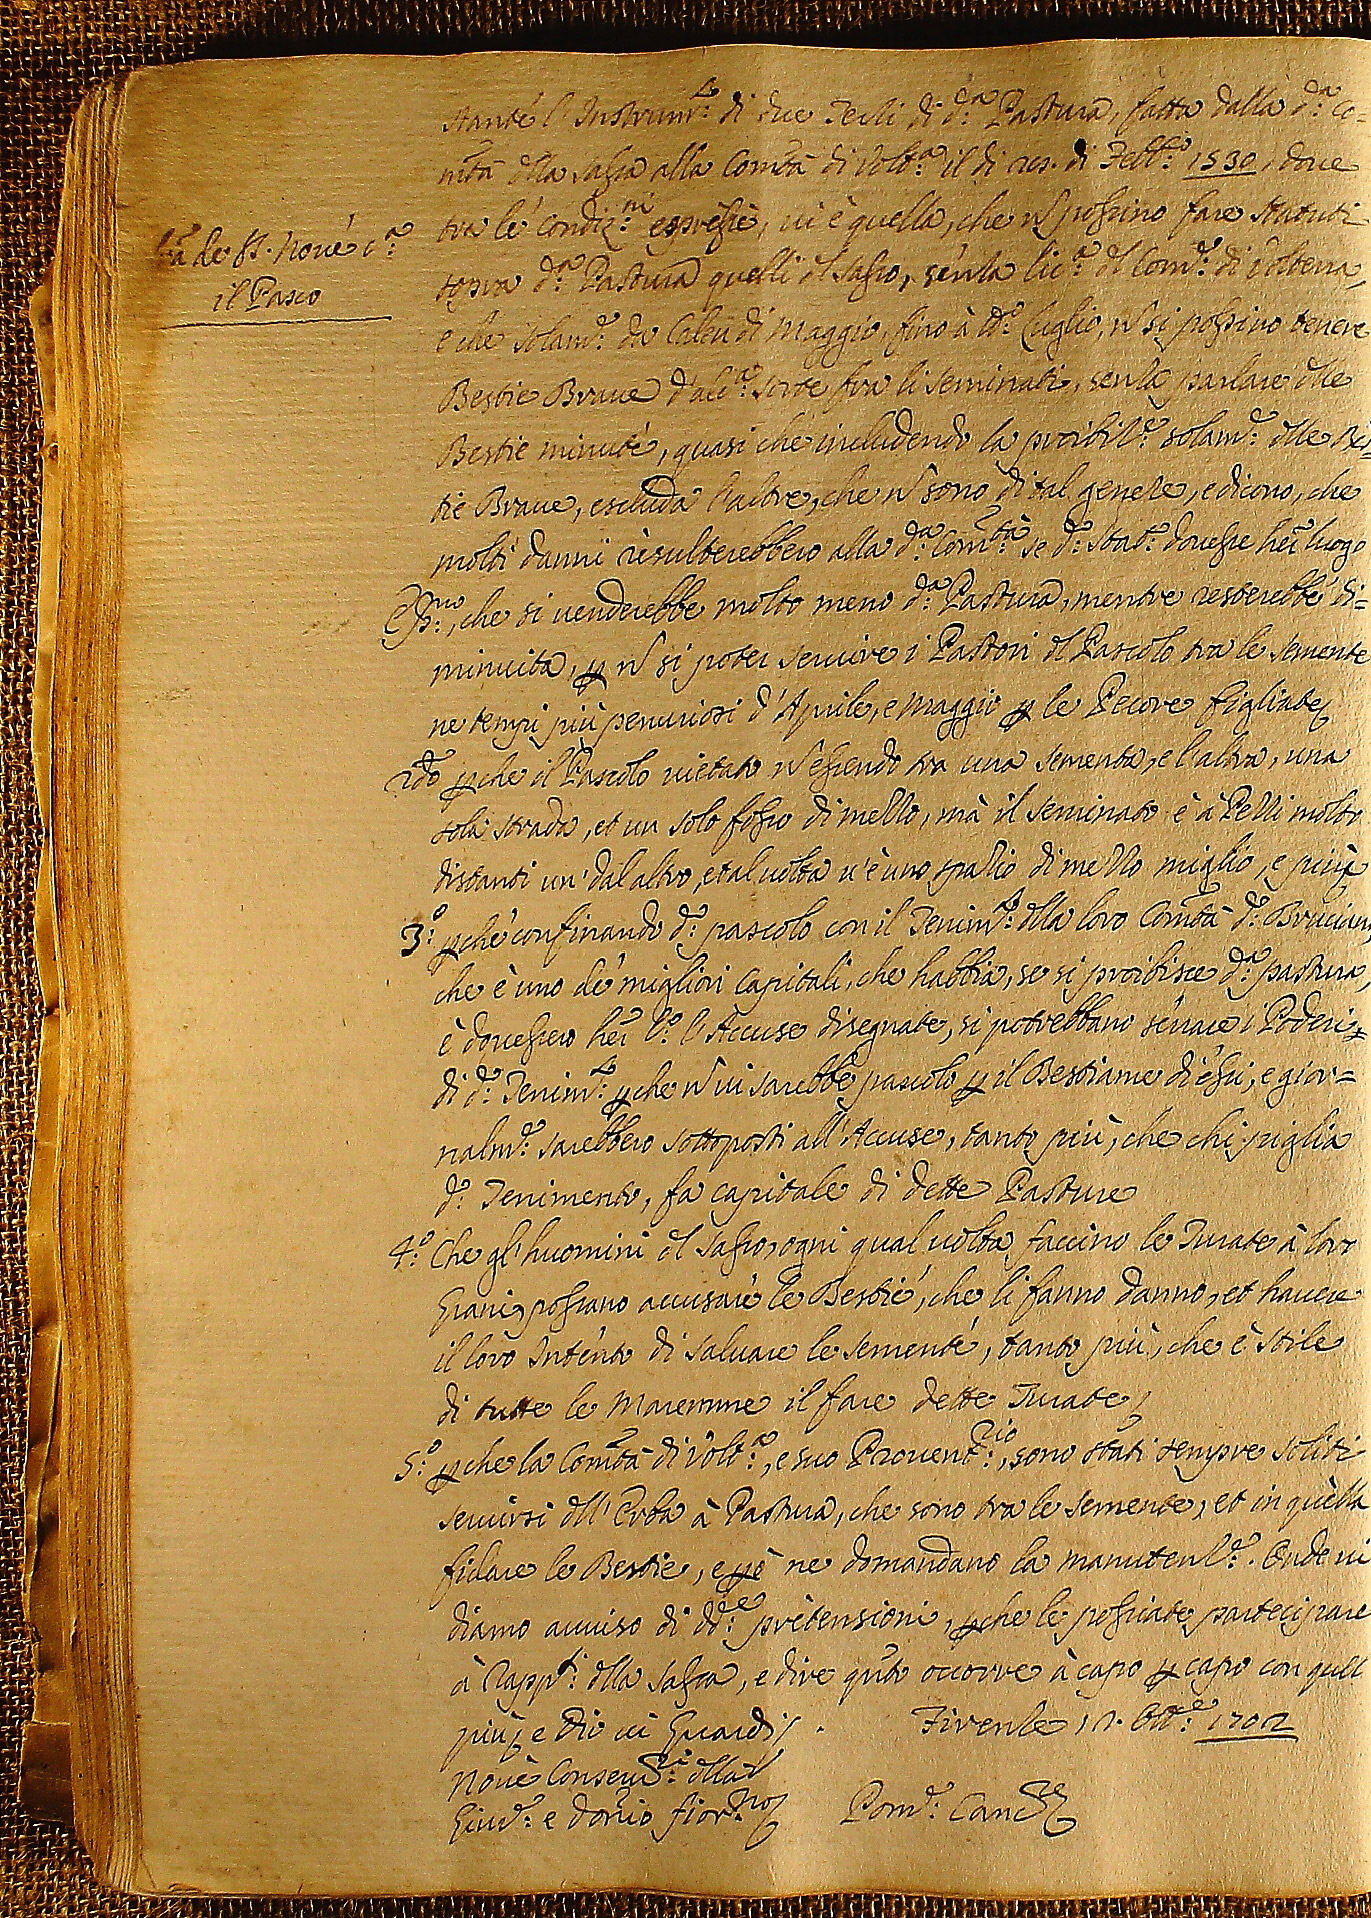 stante l'Instrum.to di due Terzi di d.a Pastura, fatta dalla d.a Co=
mtà dlla Sassa alla Comtà di Volt.a il dì di Febb.o 1530, doue
tra le Condiz.ni espresse, ui è quella, che nõ possino fare Statuti
Lrã de SS. Noue c.a
il Pasco
sopra d.a Pastura quelli dl Sasso, senza lic.a dl Com.e di Volterra,
e che solam.e da Calen di Maggio, fino à tt.o Luglio, nõ si possino tenere
Bestie Braue d'alc.a sorte fra li seminati, senza parlare dlle
Bestie minute, quasi che includendo la proibiz.e solam.e dlle Be=
stie Braue, escluda l'altre, che nõ sono di tal genere, e dicono, che
molti danni resulterebbero alla d.a Com.tà se d.o Stat.o douesse her luogo
P.mo, che si uenderebbe molto meno d.a Pastura, mentre resterebbe di=
minuita, p nõ si poter seruire i Pastori dl Pascolo tra le semente
ne tempi più penuriosi d'Aprile, e Maggio p le Pecore figliate
2do pche il Pascolo uietato nõ essendo tra una sementa, e l'altra, una
sola strada, et un solo fosso di mezzo, mà il seminato è à Pezzi molto
distanti un' dal altro, et al uolta u'è uno spazio di mezzo miglio, e più
3.o pchè confinando d.o pascolo con il Tenim.to dlla loro Comtà d.o Bruciano
che è uno de' migliori capitali, che habbia, se si proibisce d.a pastura,
è douessero her l.o l'Accuse disegnate, si potrebbano serrare i Poderi
di d.o Tenim.to pche nõ ui sarebbe pascolo p il Bestiame di essi, e gior=
nalm.e sarebbero sottoposti all'Accuse, tanto più, che chi piglia
d.o Tenimento, fa capitale di dette Pasture
4.o Che gl'huomini dl Sasso, ogni qual uolta faccino le Turate à loro
Grani, possano accusare le Bestie, che li fanno danno, et hauere
il loro Intento di saluare le semente, tanto più, che è stile
di tutte le Maremme il fare dette Turate
5.o pche la Comtà di Volt.a, e suo Prouent.rio, sono stati sempre soliti
seruirsi dll'Erba à Pastura, che sono tra le semente, et in quella
fidare le Bestie, e pò ne domandano la manutenz.e. Onde ui
diamo auuiso di dd.e pretensioni, pche le possiate partecipare
à Rapp.ti dlla Sassa, e dire quto occorre à capo p capo con quel
più, e Dio ui Guardi. Firenze Ott.e 1702
Noue Conseru.ri dlla
Giur.e e Domio fior.no Pom.o Canc.re